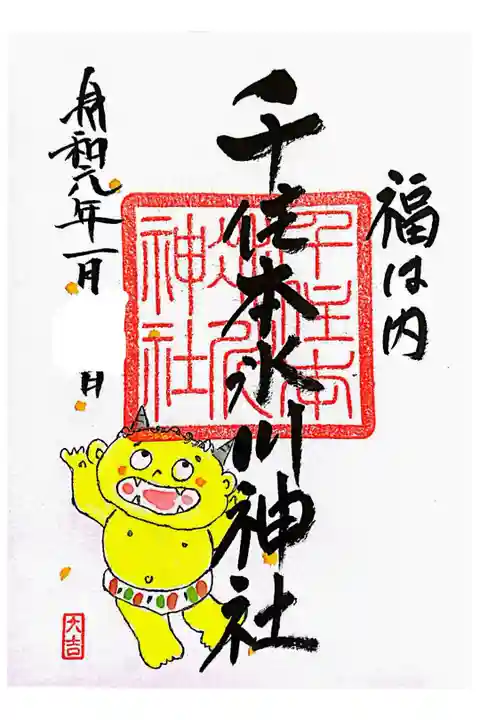 福は内
千住本氷川神社
千住本
氷川
神社
令和年月
日
大吉